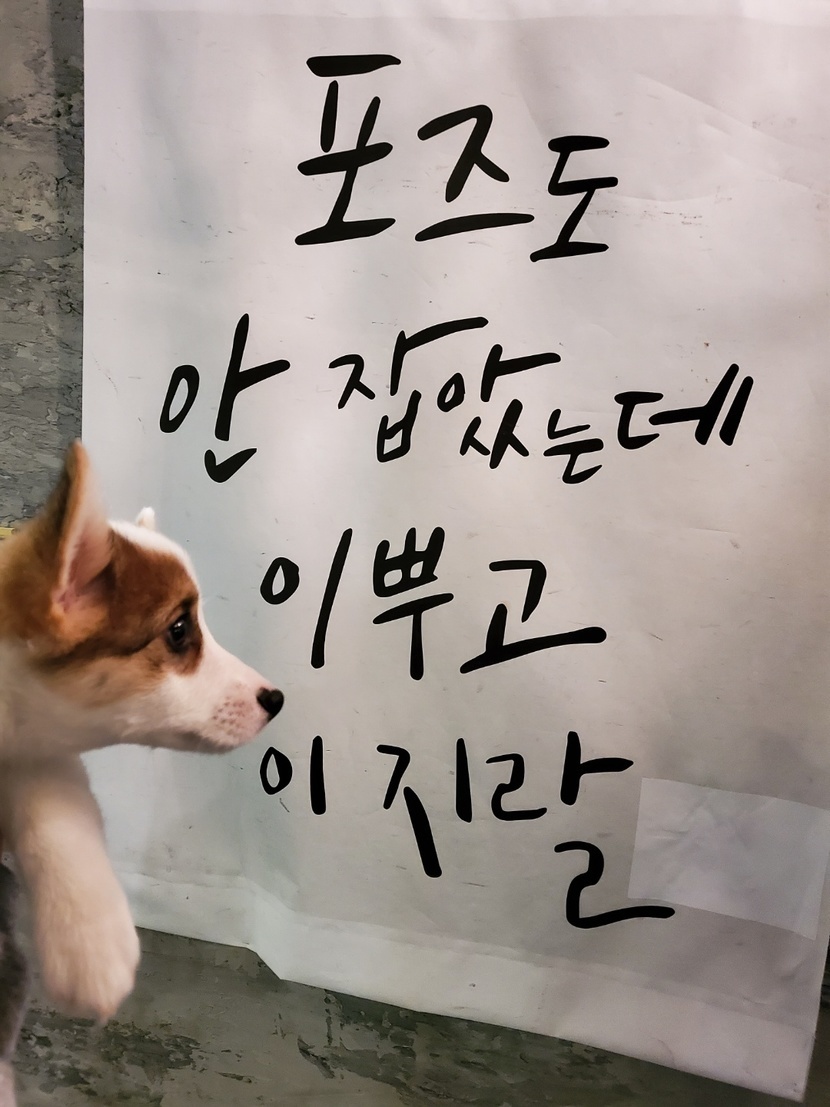 포즈도
안 잡았는데
이뿌고
이 지랄